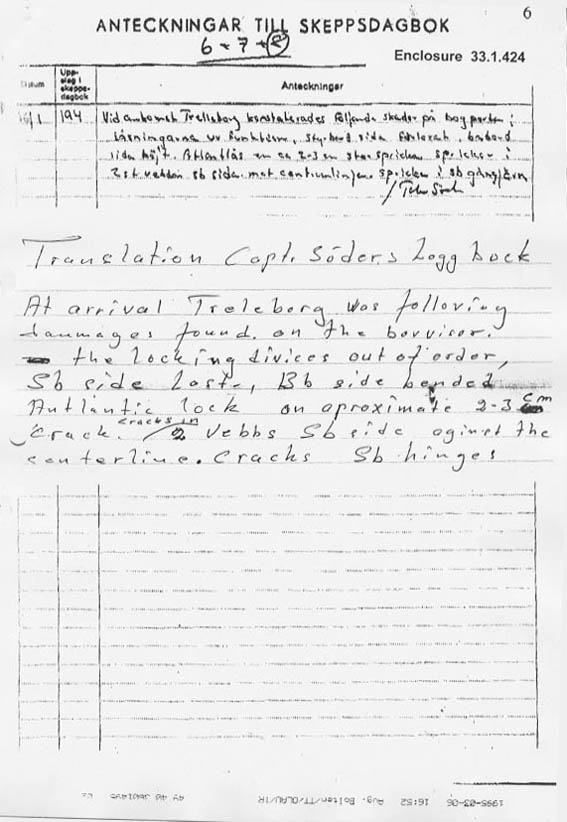 6
ANTECKNINGAR TILL SKEPPSDAGBOK
6 - 7 - 8
Enclosure 33.1.424
Datum
Upp-
slag i
skepps-
dagbok
Anteckningar
194 Vid ankomst Trelleborg konstaterades följande skador på bogporten:
låsningarna ur funktion, styrbord sida förlorat, babord
sida böjt. Atlantlås en ca 2-3 cm stor spricka sprickor i
2 st sb sida mot centrumlinjen. sprickor i sb gångjärn
Translation Capt. Söders Logg bock
At arrival Treleborg was folloving
dammages found on the bowvisor.
the locking divices out of order,
Sb side Lost, Bb side bended
Antlantic lock on aproximate 2-3 cm
crack. cracks in 2 Vebbs Sb side aginst the
centerline. Cracks Sb hinges
1995-03-06 16:52 Avg. Bolten/TT/OLAU/IR